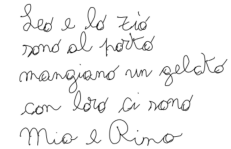 Leo e lo zio
sono al porto
mangiano un gelato
con loro ci sono
Mia e Rino